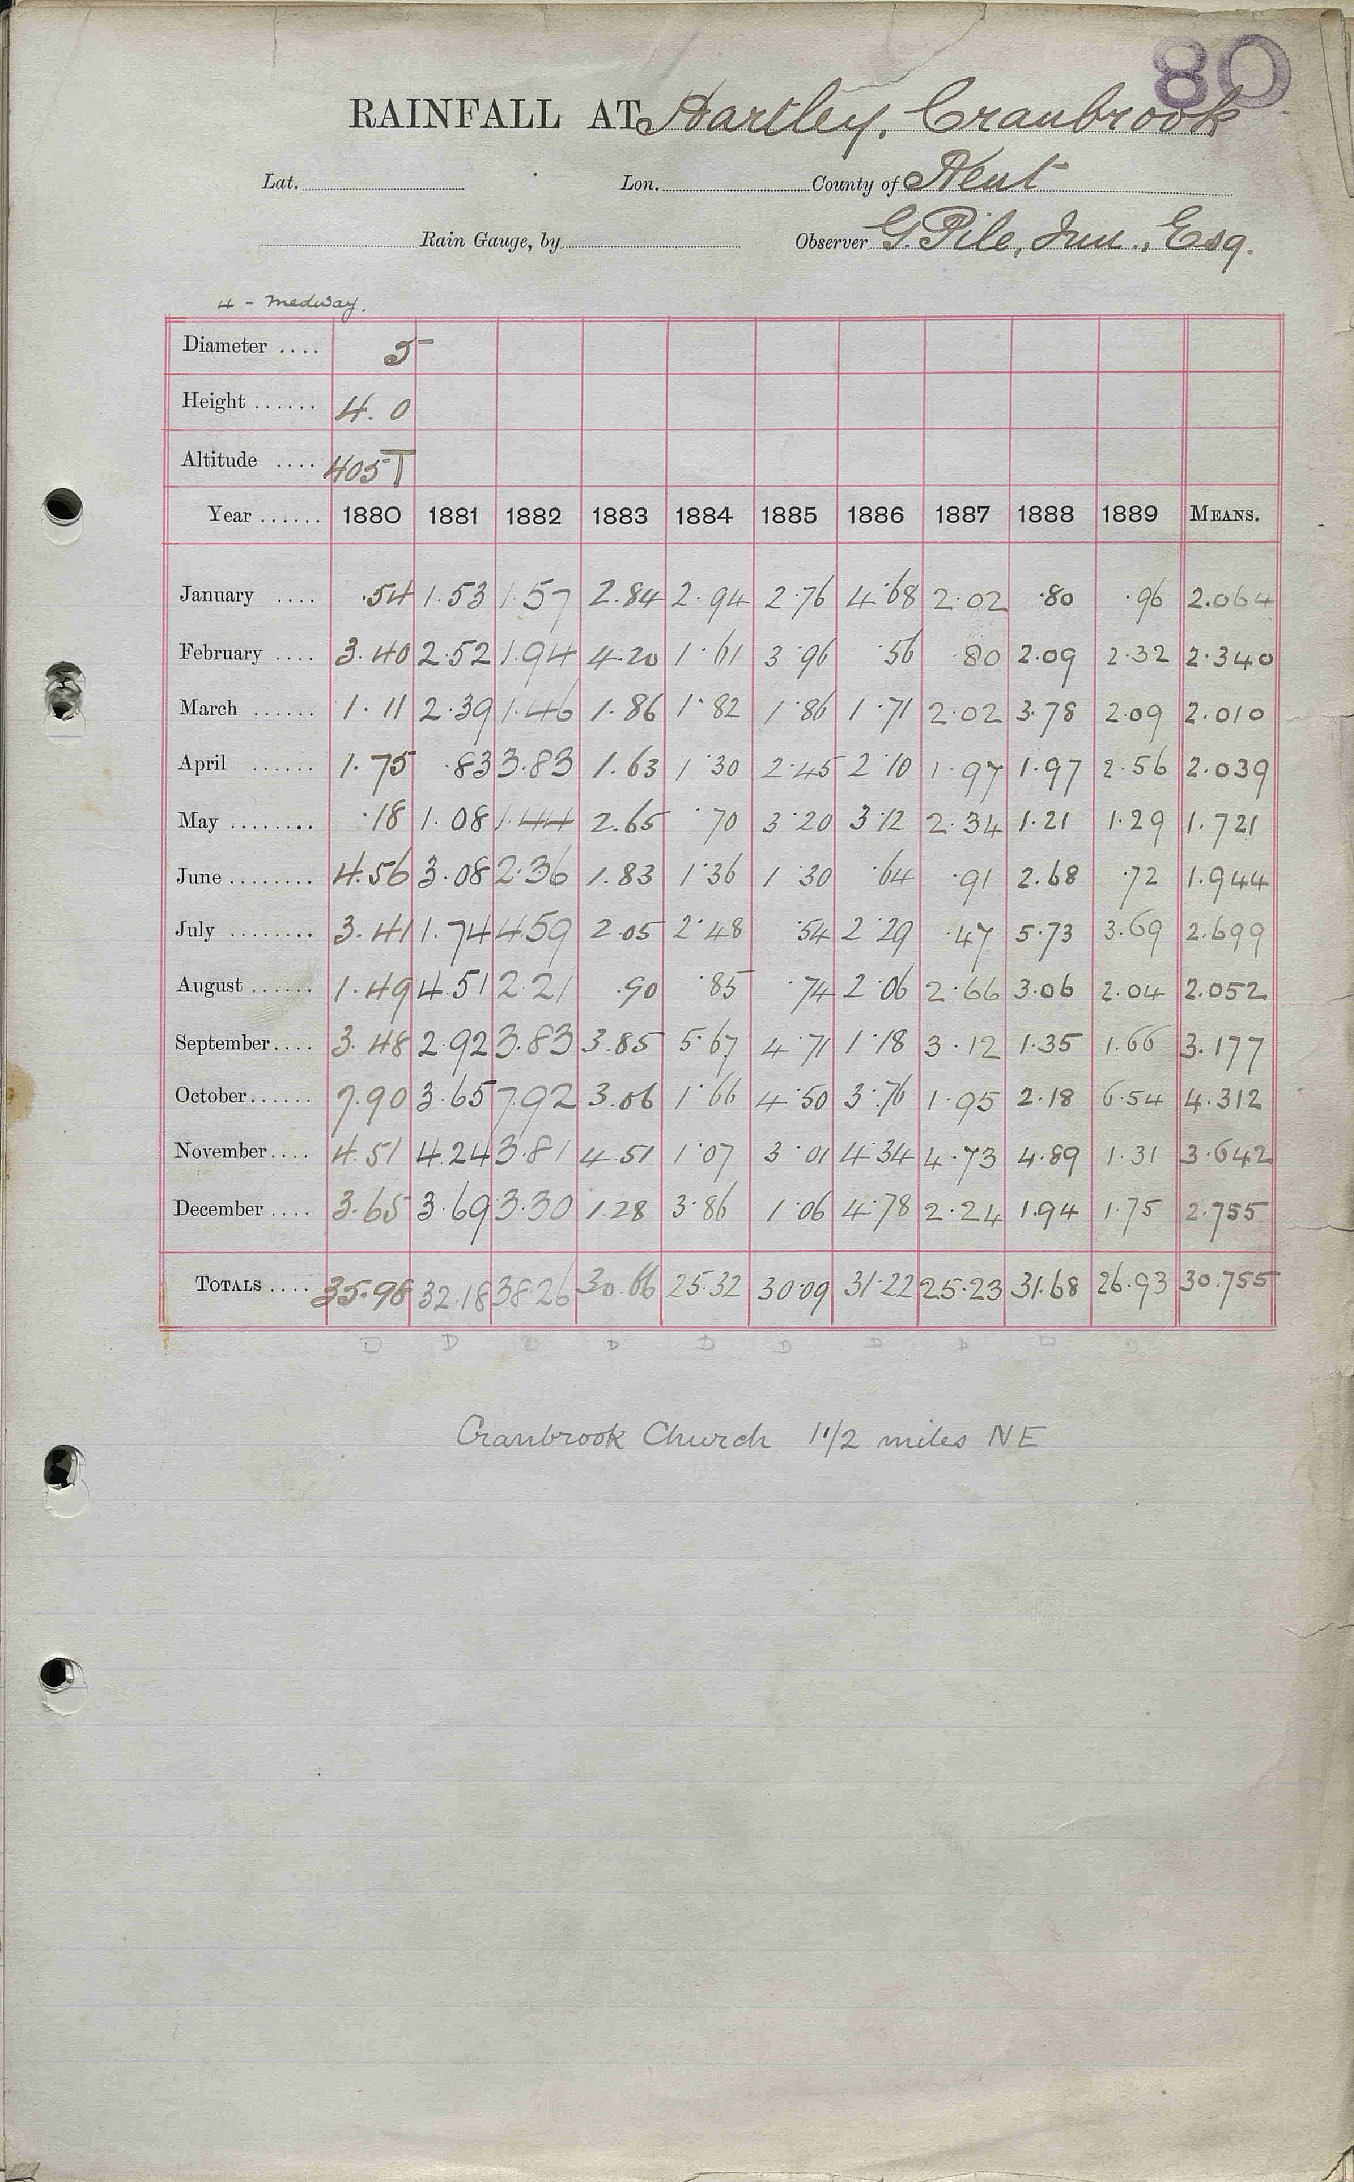 80
RAINFALL AT Hartley, Cranbrook
Lat. Lon. County of Kent
Rain Gauge, by Observer G. Pile, Jun., Esq.
4 - Medway.
Diameter .... 5
Height ...... 4. 0
Altitude .... 405 T
Year ...... 1880 1881 1882 1883 1884 1885 1886 1887 1888 1889 MEANS.
January .... .54 1.53 1.57 2.84 2.94 2.76 4.68 2.02 .80 .96 2.064
February .... 3.40 2.52 1.94 4.20 1.61 3.96 .56 .80 2.09 2.32 2.340
March ...... 1.11 2.39 1.46 1.86 1.82 1.86 1.71 2.02 3.78 2.09 2.010
April ...... 1.75 .83 3.83 1.63 1.30 2.45 2.10 1.97 1.97 2.56 2.039
May ........ .18 1.08 1.44 2.65 .70 3.20 3.12 2.34 1.21 1.29 1.721
June ........ 4.56 3.08 2.36 1.83 1.36 1.30 .64 .91 2.68 .72 1.944
July ........ 3.41 1.74 4.59 2.05 2.48 .54 2.29 .47 5.73 3.69 2.699
August ...... 1.49 4.51 2.21 .90 .85 .74 2.06 2.66 3.06 2.04 2.052
September .... 3.48 2.92 3.83 3.85 5.67 4.71 1.18 3.12 1.35 1.66 3.177
October ...... 7.90 3.65 7.92 3.06 1.66 4.50 3.76 1.95 2.18 6.54 4.312
November .... 4.51 4.24 3.81 4.51 1.07 3.01 4.34 4.73 4.89 1.31 3.642
December .... 3.65 3.69 3.30 1.28 3.86 1.06 4.78 2.24 1.94 1.75 2.755
TOTALS .... 35.98 32.18 38.26 30.66 25.32 30.09 31.22 25.23 31.68 26.93 30.755
D D D D D D D D D D
Cranbrook Church 1 1/2 miles NE